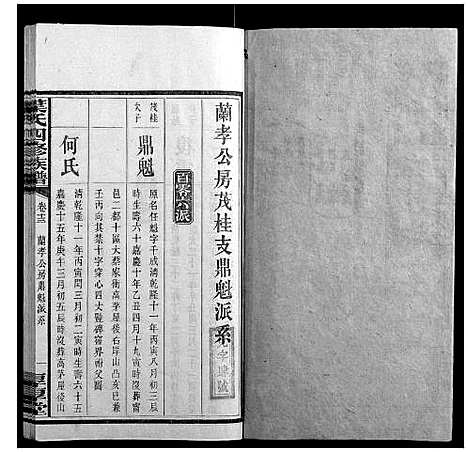 蘭孝公房茂桂支鼎魁派系
百零六派
茂桂
次子
鼎魁
原名任魁字千成清乾隆十一年丙寅八月初三辰
時生壽六十嘉慶十年乙丑四月十九寅時沒葬
邑二都十區大蔡家衛高茅屋後右岸山凸亥巳兼
丙向其禁十字穿心四丈豎碑窨界
何氏
清乾隆十一年丙寅閏三月初二寅時生壽六十五
嘉慶十五年庚午三月初五辰時沒葬高茅屋後山
葉氏四修族譜
卷十三
蘭孝公房鼎魁派系